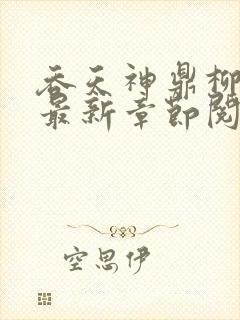 吞天神鼎柳
最新章节阅
空思伊